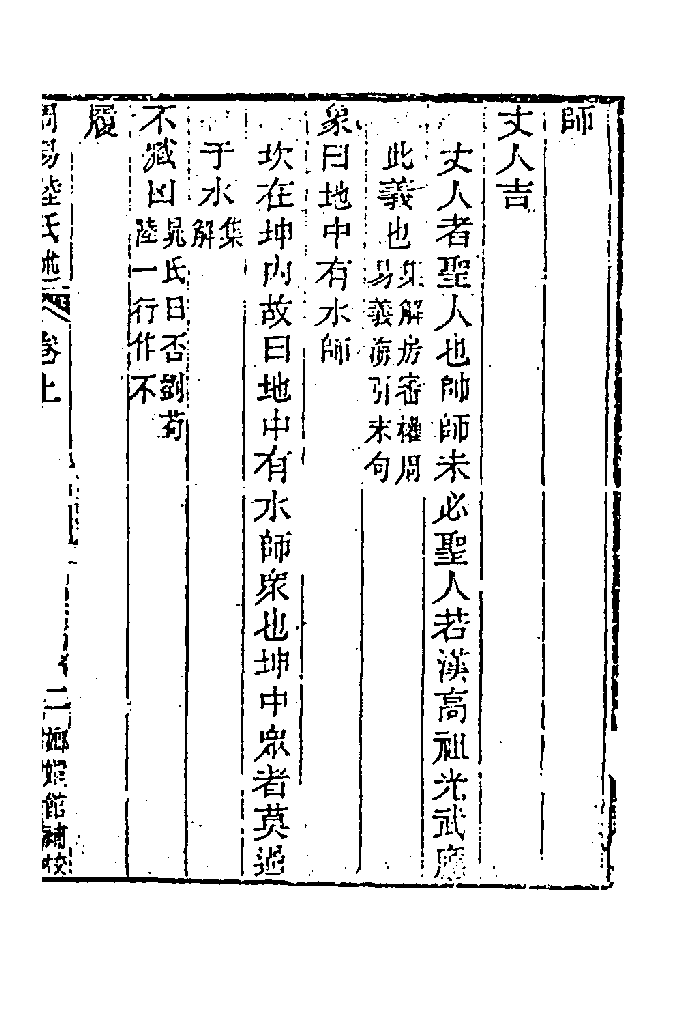 師
丈人吉
丈人者聖人也帥師未必聖人若漢高祖光武應
此義也集解房審權周
易義海引末句
象曰地中有水師
坎在坤內故曰地中有水師眾也坤中眾者莫過
于水集
解
不臧凶晁氏曰否劉荀
陸一行作不
履
周易陸氏述
卷上
二
嫏嬛館補校